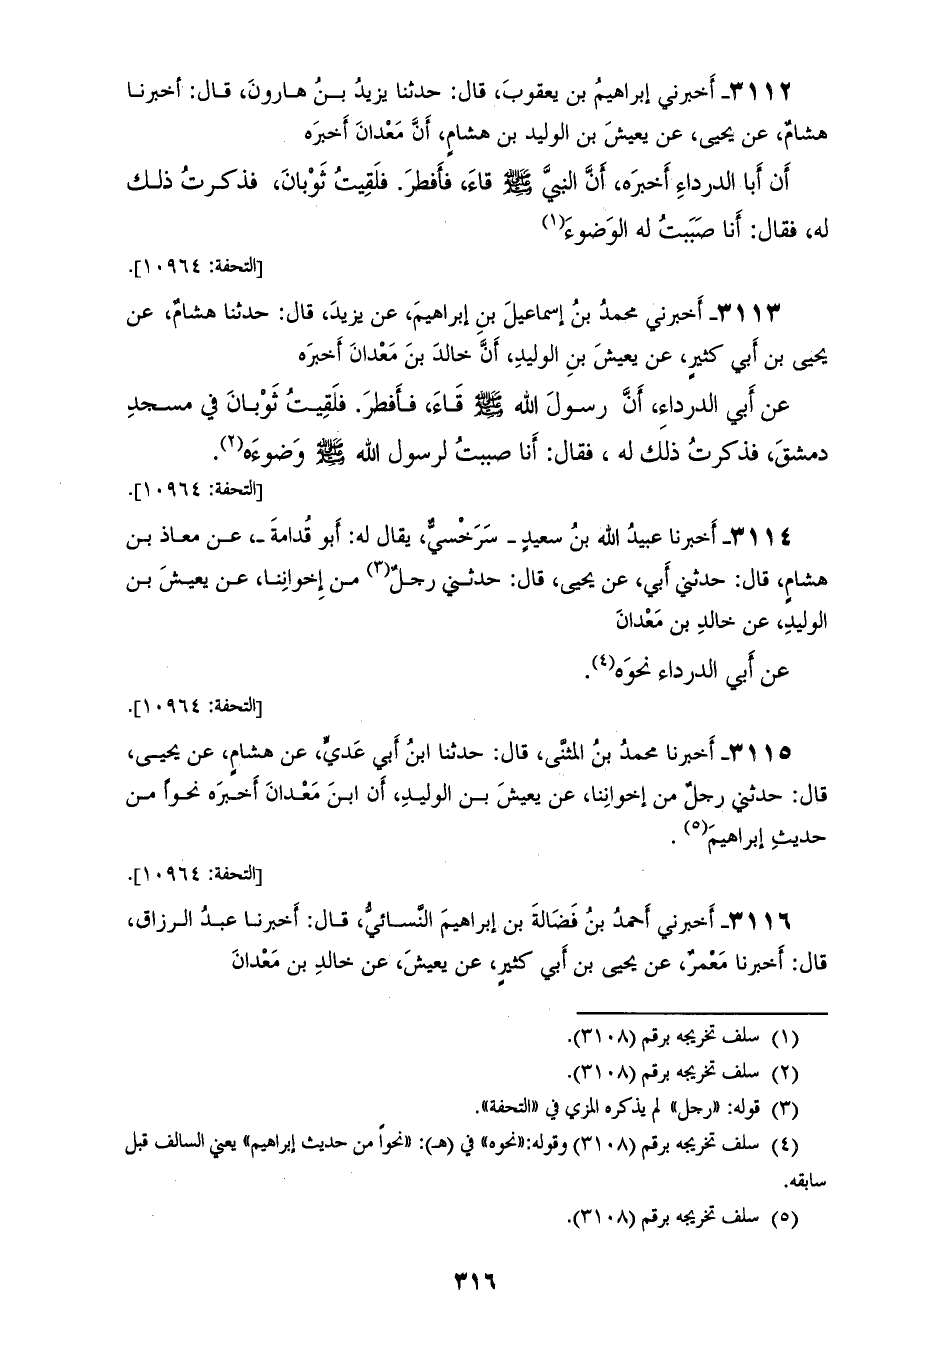 ٣١١٢ـ أَخبرني إبراهيمُ بن يعقوبَ، قال: حدثنا يزيدُ بـنُ هـارونَ، قـال: أخبرنـا
هشامٌ، عن يحيى، عن يعيشَ بن الوليد بن هشامٍ، أنَّ مَعْدانَ أخبرَه
أن أَبا الدرداءِ أَخبرَه، أَنَّ النبيَّ ﷺ قاءَ، فأَفطرَ. فلَقِيتُ ثَوْبانَ، فذكـرتُ ذلـك
له، فقال: أَنا صَبَبتُ له الوَضوءَ(١)
[التحفة: ١٠٩٦٤].
٣١١٣ـ أَخبرني محمدُ بنُ إسماعيلَ بنِ إبراهيمَ، عن يزيدَ، قال: حدثنا هشامٌ، عن
يحيى بن أَبي كثيرٍ، عن يعيشَ بنِ الوليدِ، أَنَّ خالدَ بنَ مَعْدانَ أخبرَه
عن أَبي الدرداءِ، أَنَّ رسـولَ الله ﷺ قَـاءَ، فـأَفطرَ. فلَقِيـتُ ثَوْبـانَ في مسـجدِ
دمشقَ، فذكرتُ ذلك له ، فقال: أنا صببتُ لرسول الله ﷺ وَضوءَه(٢).
[التحفة: ١٠٩٦٤].
٣١١٤ـ أَخبرنا عبيدُ الله بنُ سعيدٍ ـ سَرَخْسيٌّ، يقال له: أَبو قُدامةَ ـ، عـن معاذ بـن
هشامٍ، قال: حدثني أَبي، عن يحيى، قال: حدثـني رجلٌ(٣) مـن إخوانِنـا، عـن يعيـشَ بـن
الوليدِ، عن خالدِ بن مَعْدانَ
عن أَبي الدرداء نحوَه(٤).
[التحفة: ١٠٩٦٤].
٣١١٥ـ أَخبرنا محمدُ بنُ المثنَّى، قال: حدثنا ابنُ أَبي عَديٍّ، عن هشامٍ، عن يحيـى،
قال: حدثني رجلٌ من إخوانِنا، عن يعيشَ بـن الوليـدِ، أَن ابـنَ مَعْـدانَ أَخـبرَه نحـواً مـن
حديثِ إبراهيمَ(٥) .
[التحفة: ١٠٩٦٤].
٣١١٦ـ أَخبرني أَحمدُ بنُ فَضَالةَ بن إبراهيمَ النَّسـائيُّ، قـال: أَخبرنـا عبـدُ الـرزاق،
قال: أَخبرنا مَعْمرٌ، عن يحيى بن أَبي كثيرٍ، عن يعيشَ، عن خالدِ بن مَعْدانَ
(١) سلف تخريجه برقم (٣١٠٨).
(٢) سلف تخريجه برقم (٣١٠٨).
(٣) قوله: «رجل» لم يذكره المزي في «التحفة».
(٤) سلف تخريجه برقم (٣١٠٨) وقوله:«نحوه» في (هـ): «نحواً من حديث إبراهيم» يعني السالف قبل
سابقه.
(٥) سلف تخريجه برقم (٣١٠٨).
٣١٦